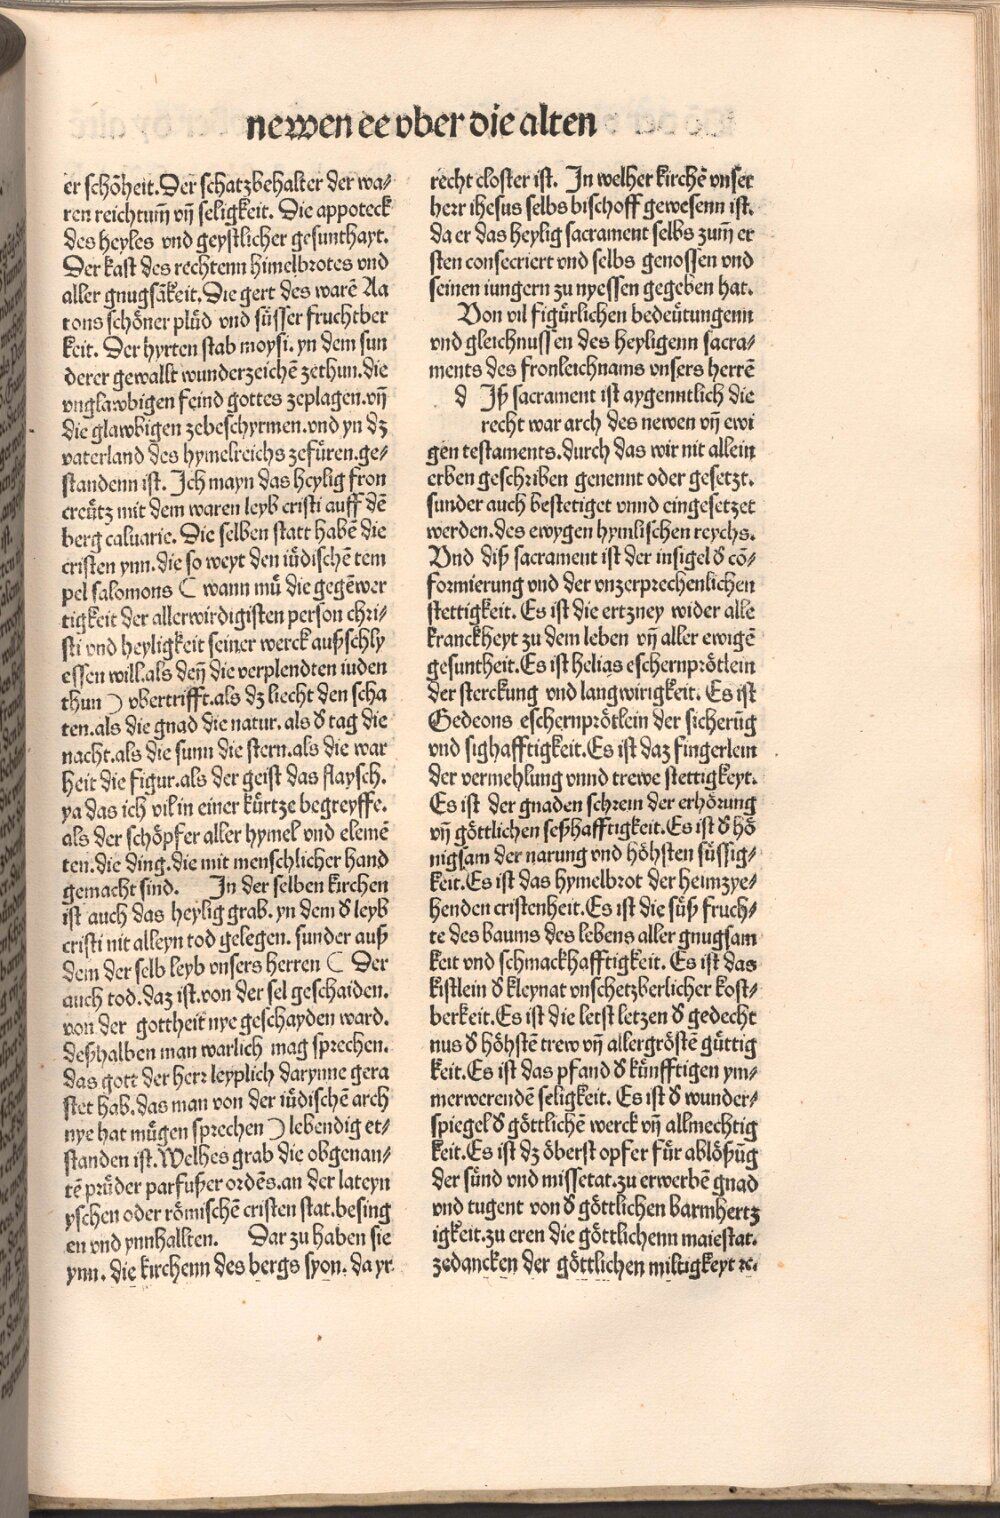 newen ee vber die alten
er schőheit. Der schatzbehalter der wa⸗
ren reichtum̄ vn̄ seligkeit. Die appoteck
des heyles vnd geystlicher gesunthayt.
Der kast des rechtenn himelbrotes vnd
aller gnugsākeit. Die gert des warē Aa
rons schöner plůd vnd süsser fruchtber
keit. Der hyrten stab moysi. yn dem sun
derer gewallt wunderzeichē zethun. die
vnglawbigen feind gottes zeplagen. vn̄
die glawbigen zebeschyrmen. vnd yn dz
vaterland des hymelreichs zefüren. ge⸗
standenn ist. Ich mayn das heylig fron
creütz mit dem waren leyb cristi auff dē
berg caluarie. Die selben statt habē die
cristen ynn. die so weyt den iüdischē tem
pel salomons ( wann mū die gegēwer
tigkeit der allerwirdigisten person chri⸗
sti vnd heyligkeit seiner werck außschly
essen will. als den̄ die verplendten iuden
thun ) vbertrifft. als dz liecht den scha
ten. als die gnad die natur. als ð tag die
nacht. als die sunn die stern. als die war
heit die figur. als der geist das flaysch.
ya das ich vil in einer kürtze begreyffe.
als der schöpfer aller hymel vnd elemē
ten. die ding. die mit menschlicher hand
gemacht sind. In der selben kirchen
ist auch das heylig grab. yn dem ð leyb
cristi nit alleyn tod gelegen. sunder auß
dem der selb leyb vnsers herren ( Der
auch tod. daz ist. von der sel geschaiden.
von der gottheit nye geschayden ward.
deßhalben man warlich mag sprechen.
das gott der herr leyplich darynne gera
stet hab. das man von der iüdischē arch
nye hat mügen sprechen ) lebendig er⸗
standen ist. Welhes grab die obgenan⸗
tē prüder parfußer ordēs. an der lateyn
yschen oder römischē cristen stat. besing
en vnd ynnhallten. Dar zu haben sie
ynn. die kirchenn des bergs syon. da yr
recht closter ist. In welher kirchē vnser
herr ihesus selbs bischoff gewesenn ist.
da er das heylig sacrament selbs zum̄ er
sten consecriert vnd selbs genossen vnd
seinen iungern zu nyessen gegeben hat.
Von vil figürlichen bedeütungenn
vnd gleichnussen des heyligenn sacra⸗
ments des fronleichnams vnsers herrē
d Iß sacrament ist aygenntlich die
recht war arch des newen vn̄ ewi
gen testaments. durch das wir nit allein
erben geschriben genennt oder gesetzt.
sunder auch bestetiget vnnd eingesetzet
werden. des ewygen hymlischen reychs.
Vnd diß sacrament ist der insigel ð cō⸗
formierung vnd der vnzerprechenlichen
stettigkeit. Es ist die ertzney wider alle
kranckheyt zu dem leben vn̄ aller ewigē
gesuntheit. Es ist helias eschernprötlein
der sterckung vnd langwirigkeit. Es ist
Gedeons eschernprötlein der sicherūg
vnd sighafftigkeit. Es ist daz fingerlein
der vermehlung vnnd trewe stettigkeyt.
Es ist der gnaden schrein der erhörung
vn̄ göttlichen seßhafftigkeit. Es ist ð hö
nigsam der narung vnd höhsten süssig⸗
keit. Es ist das hymelbrot der heimzye⸗
henden cristenheit. Es ist die süß fruch⸗
te des baums des lebens aller gnugsam
keit vnd schmackhafftigkeit. Es ist das
kistlein ð kleynat vnschetzberlicher kost⸗
berkeit. Es ist die letst letzen ð gedecht
nus ð höhstē trew vn̄ allergröstē güttig
keit. Es ist das pfand ð künfftigen ym⸗
merwerendē seligkeit. Es ist ð wunder⸗
spiegel ð göttlichē werck vn̄ allmechtig
keit. Es ist dz öberst opfer für ablößūg
der sünd vnd missetat. zu erwerbē gnad
vnd tugent von ð göttlichen barmhertz
igkeit. zu eren die göttlichenn maiestat.
zedancken der göttlichen miltigkeyt ꝛc.